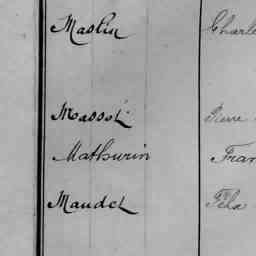 Maslin Charle
Massot Pierre
Mathurin Fran
Maudet Féli